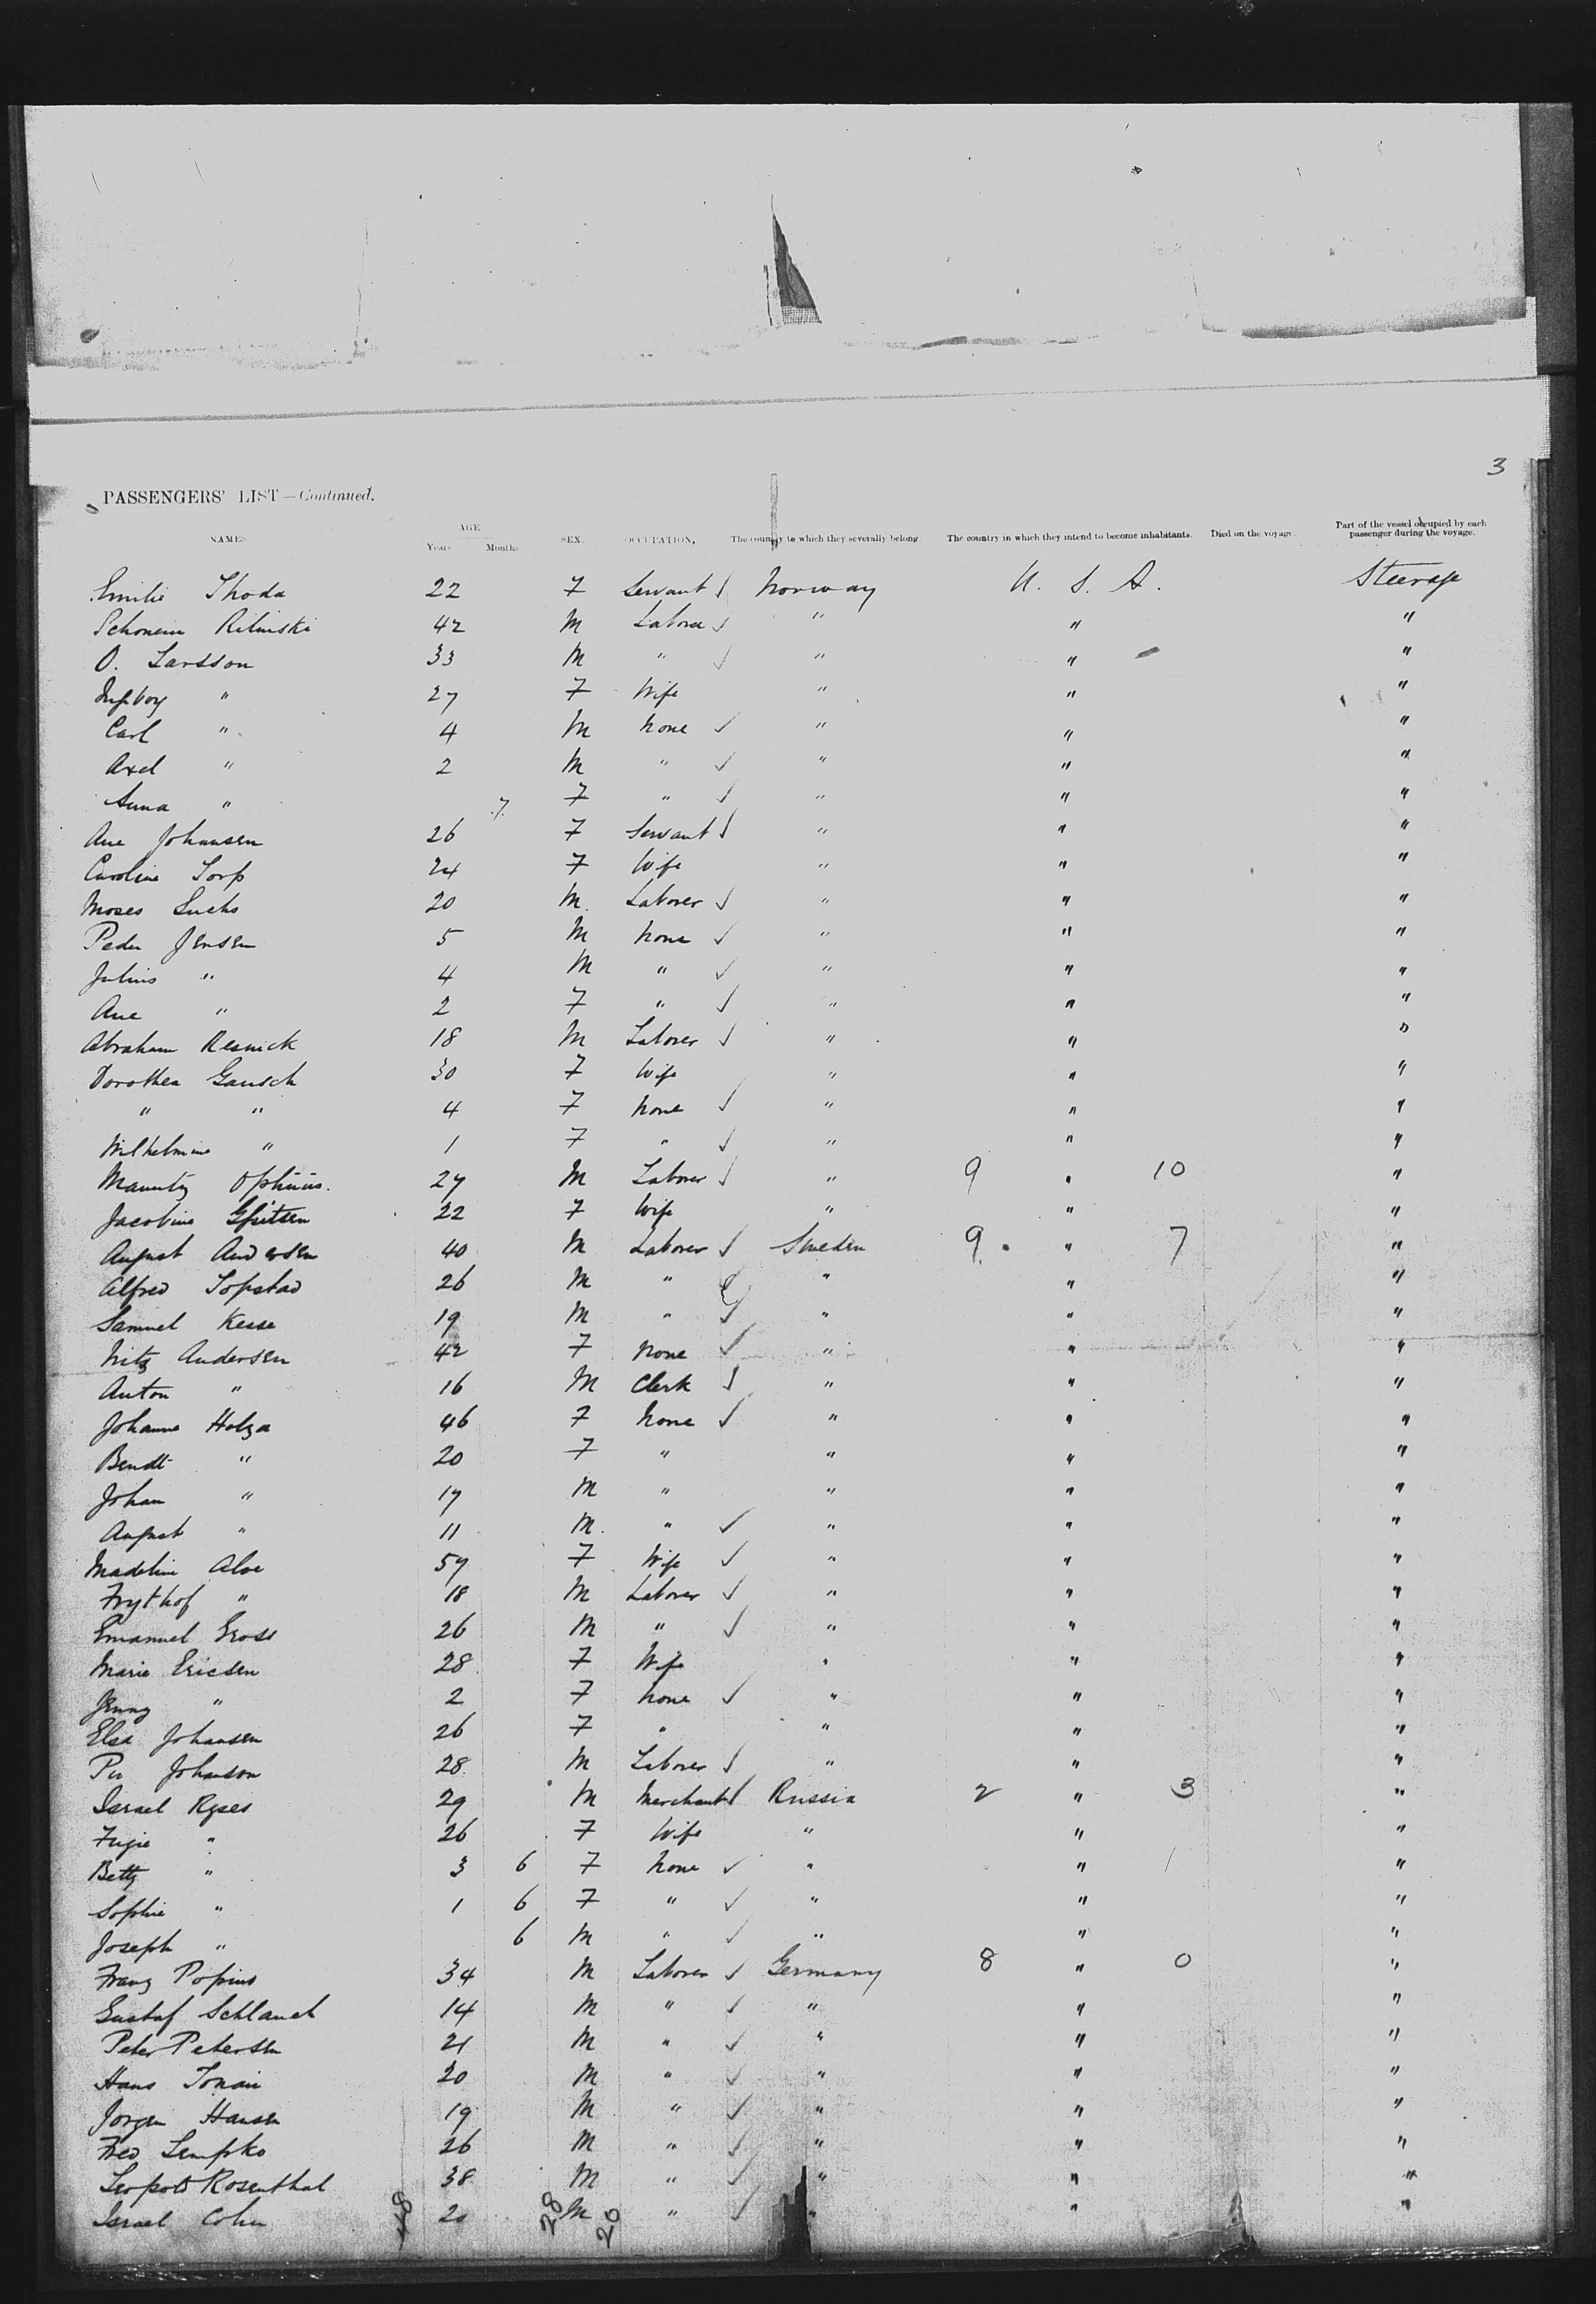 3
PASSENGERS' LIST—Continued.
NAMES AGE Years Months SEX. OCCUPATION, The country to which they severally belong. The country in which they intend to become inhabitants. Died on the voyage. Part of the vessel occupied by each passenger during the voyage.
Emilie Thoda 22 F Servant ✓ Norway U. S. A. Steerage
Rilinski 42 M Labore ✓ " " "
O. Larsson 33 M " ✓ " " "
Ingborg " 27 F Wife " " "
Carl " 4 M None ✓ " " "
Axel " 2 M " ✓ " " "
Anna " 7 F " ✓ " " "
Ane Johansen 26 F Servant ✓ " " "
Caroline Torp 24 F Wife " " "
Moses Suchs 20 M Laborer ✓ " " "
Peder Jensen 5 M None ✓ " " "
Julius " 4 M " ✓ " " "
Ane " 2 F " ✓ " " "
Abraham Resnick 18 M Laborer ✓ " " "
Dorothea Gausch 30 F Wife " " "
" " 4 F None ✓ " " "
Wilhelmine " 1 F " ✓ " " "
27 M Laborer ✓ " 9 " 10 "
Jacobine 22 F Wife " " "
August Andersen 40 M Laborer ✓ Sweden 9 " 7 "
Alfred Topstad 26 M " ✓ " " "
Samuel Kesse 19 M " ✓ " " "
Andersen 42 F None ✓ " " "
Anton " 16 M Clerk ✓ " " "
Johanne Holza 46 F None ✓ " " "
Bendt " 20 F " " " "
Johan " 17 M " " " "
August " 11 M " ✓ " " "
Madeline Aloe 57 F Wife ✓ " " "
Frythof " 18 M Laborer ✓ " " "
Emanuel Gross 26 M " ✓ " " "
Marie Ericsen 28 F Wife " " "
Jenny " 2 F None ✓ " " "
Elsa Johansen 26 F " " " "
Per Johanson 28 M Laborer ✓ " " "
Israel Ryses 29 M Merchant ✓ Russia 2 " 3 "
Fugie " 26 F Wife " " "
Betty " 3 6 F None ✓ " " "
Sophie " 1 6 F " ✓ " " "
Joseph " 6 M " ✓ " " "
Franz Popins 34 M Laborer ✓ Germany 8 " 0 "
Gustaf Schlauch 14 M " ✓ " " "
Peter Petersen 21 M " ✓ " " "
Hans 20 M " ✓ " " "
Jorgen Hansen 19 M " ✓ " " "
Fred Lempko 26 M " ✓ " " "
Leopold Rosenthal 38 M " ✓ " " "
Israel Cohen 20 M " ✓ " " "
48 28 20